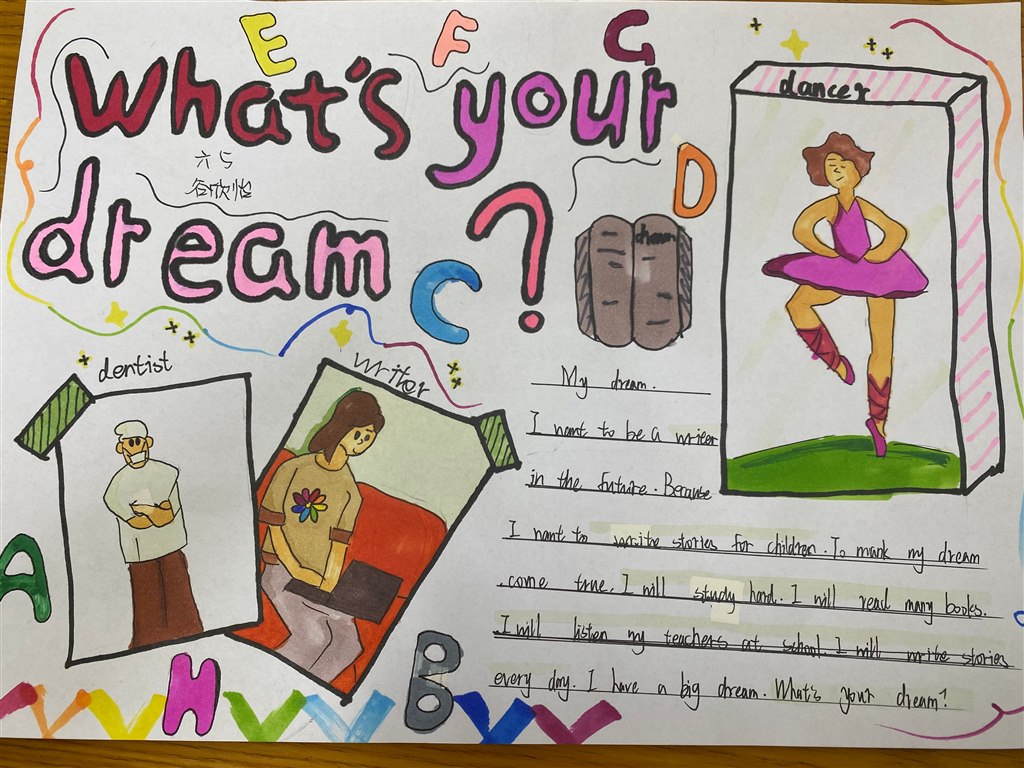 E F G
What's your
dream ?
六5
谷欣怡
D
C
dream
dancer
dentist
writor
My dream.
I want to be a writer
in the future. Because
I want to write stories for children. To mank my dream
come true. I will study hard. I will read many books.
I will listen my teachers at school. I will write stories
every day. I have a big dream. What's your dream?
A
H
B